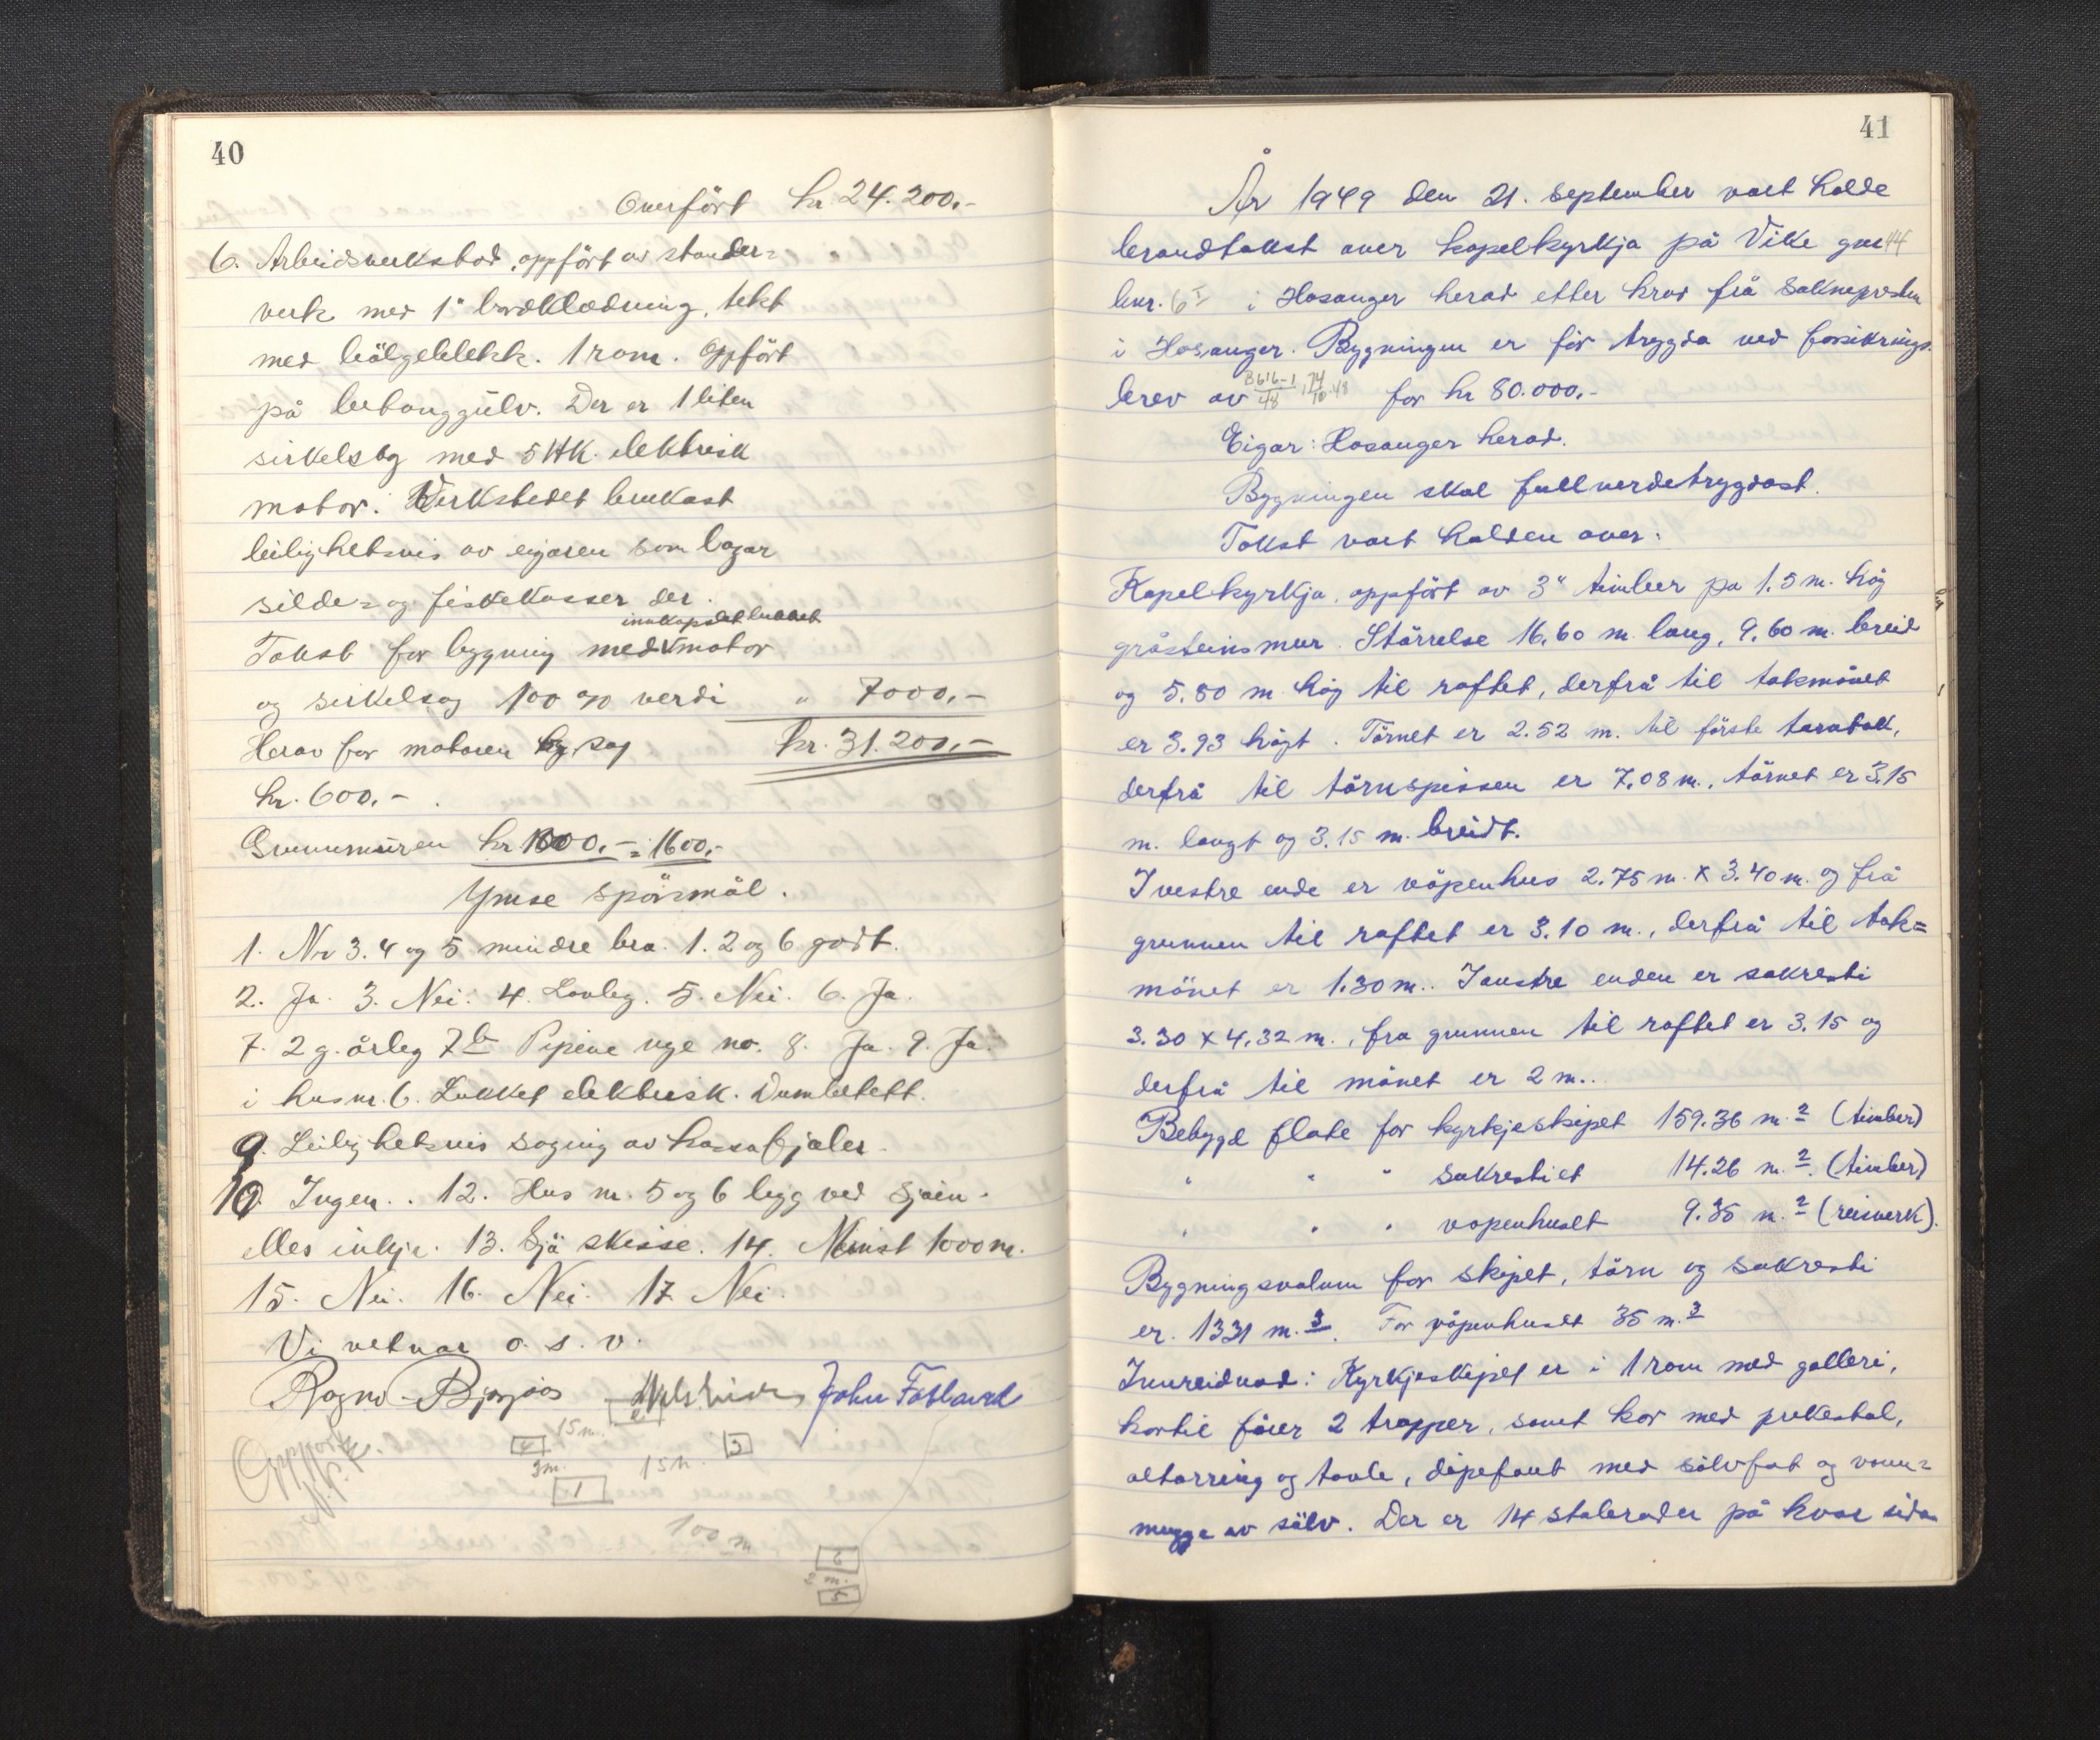 40
Overført kr. 24.200,-
6. Arbeidsverkstad, oppført av stender=
verk med 1" bordklædning, tekt
med bölgeblekk. 1 rom. Oppfört
på betonggülv. Der er 1 liten
sirkelsag med 5 HK. elektrisk
motor. Verkstedet brukast
leilighetsvis av eigaren som lagar
silde= og fiskekasser der.
innkapslet lukket
Takst for bygning med motor
og sirkelsag 100 % verdi " 7000,-
Herav for motoren og sag kr. 31.200,-
kr. 600,-
Grunnmüren kr. 1600,- = 1600,-
Ymse spörsmål.
1. Nr 3. 4 og 5 mindre bra. 1. 2 og 6 godt.
2. Ja. 3. Nei. 4. Lovleg. 5. Nei. 6. Ja.
7. 2 g. årleg 7b Pipene nye no. 8. Ja. 9. Ja.
i hus nr. 6. Lukket elektrisk.
9. Leilighetsvis saging av kassafjøler.
10. Ingen. 12. Hus nr. 5 og 6 ligg ved sjøen.
elles inkje. 13. Sjå skisse. 14. Minst 1000 m.
15. Nei. 16. Nei. 17. Nei.
Vi vetnar o. s. v.
John
15 m.
4
3
3 m.
15 m.
1
100 m
6
2 m.
5
41
År 1949 den 21. september vart halde
brandtakst over kapelkyrkja på Vike gnr 44
bnr. 6 I i Hosanger herad etter krav frå Soknepresten
i Hosanger. Bygningen er før trygda ved forsikrings-
brev av 3616-1/48, 14/10.48 for kr 80.000,-
Eigar: Hosanger herad.
Bygningen skal fullverdetrygdast.
Takst vart halden over:
Kapelkyrkja, oppfört av 3" timber på 1.5 m. høg
gråsteinsmur. Störrelse 16.60 m. lang, 9.60 m. breid
og 5.80 m høg til raftet, derfrå til takmönet
er 3.93 høgt. Tårnet er 2.52 m. til förste tarntak,
derfrå til tårnspissen er 7.08 m., tårnet er 3.15
m. langt og 3.15 m. breidt.
I vestre ende er våpenhus 2.75 m. x 3.40 m. og frå
grunnen til raftet er 3.10 m., derfrå til tak=
mönet er 1.30 m.. I austre enden er sakresti
3.30 x 4.32 m., fra grunnen til raftet er 3.15 og
derfrå til mönet er 2 m..
Bebygd flate for kyrkjeskipet 159.36 m.2 (timber)
" " " sakrestiet 14.26 m.2. (timber)
" " " vapenhuset 9.35 m.2 (reisverk).
Bygningsvolum for skipet, tårn og sakresti
er. 1331 m.3. For våpenhuset 35 m.3
Innreidnad: Kyrkjeskipet er i 1 rom med galleri,
kortil fører 2 trapper, samt kor med prekestol,
altarring og tavle, døpefont med sölvfat og vann=
mugge av sölv. Der er 14 stolerader på kvar sida